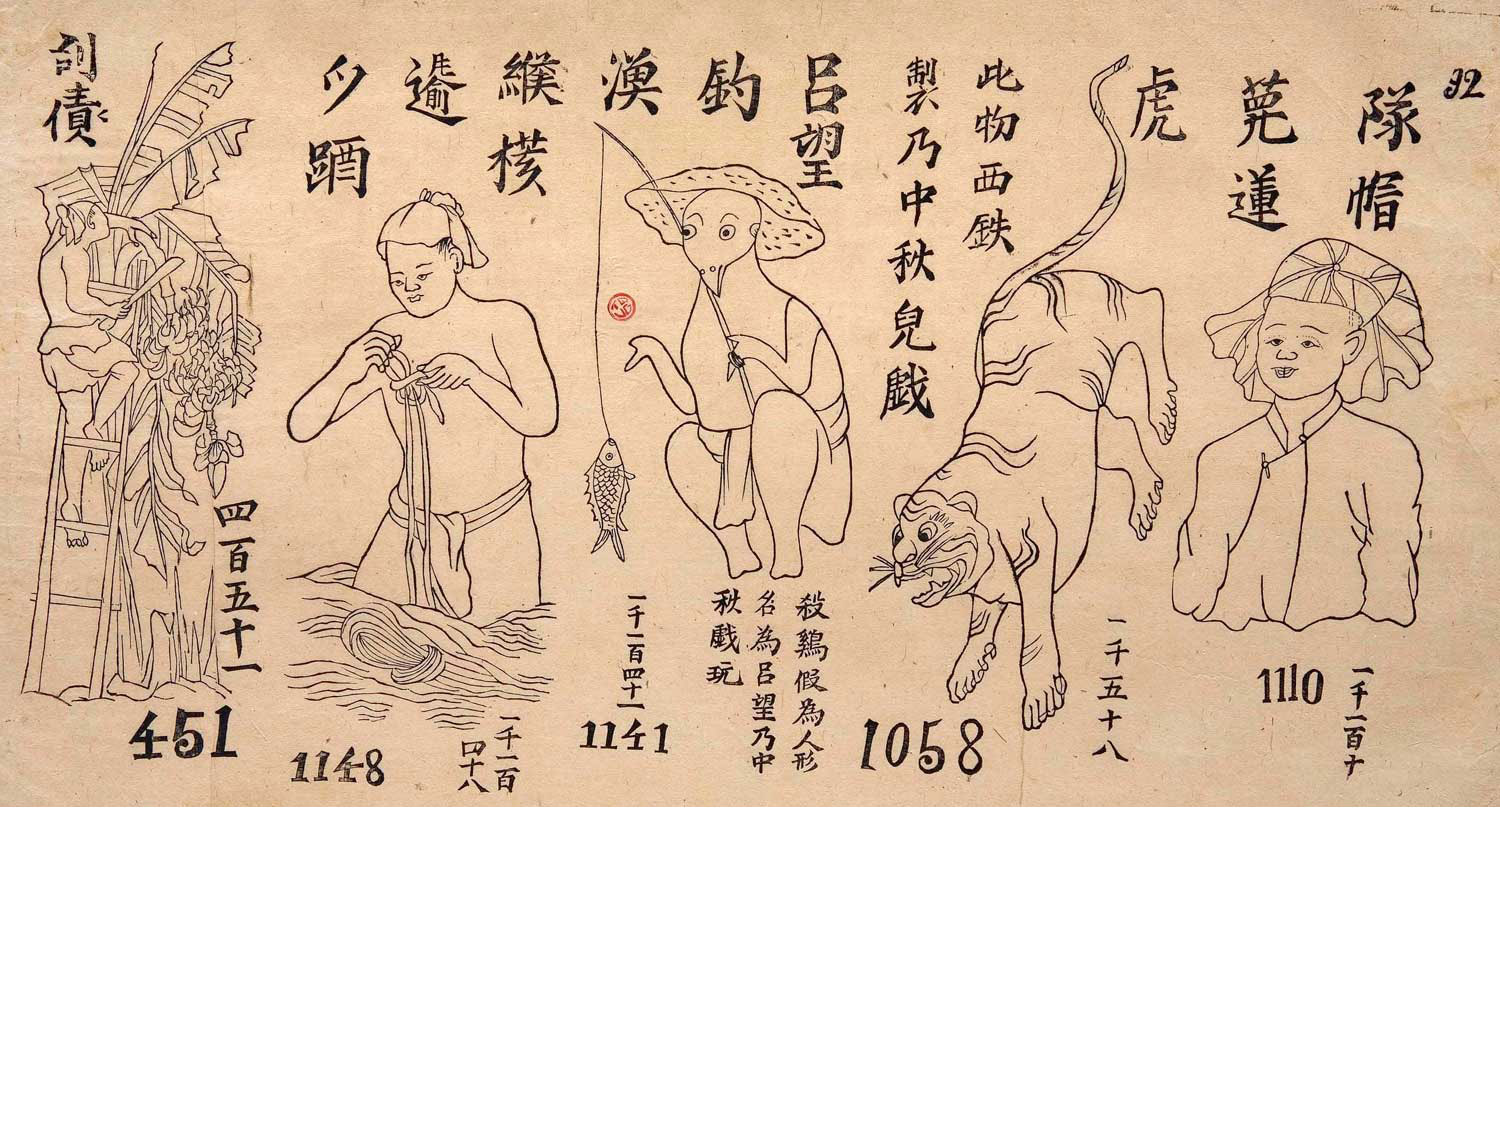 32
隊
帽
蓮
1110
一千一百十
虎
此物西鉄
製衣乃中秋兒戯
1058
一千五十八
呂望
釣
漁
殺鷄假為人形
名為呂望乃中
秋戯玩
一千一百四十一
1141
緱
一千一百
四十八
1148
債
四百五十一
451